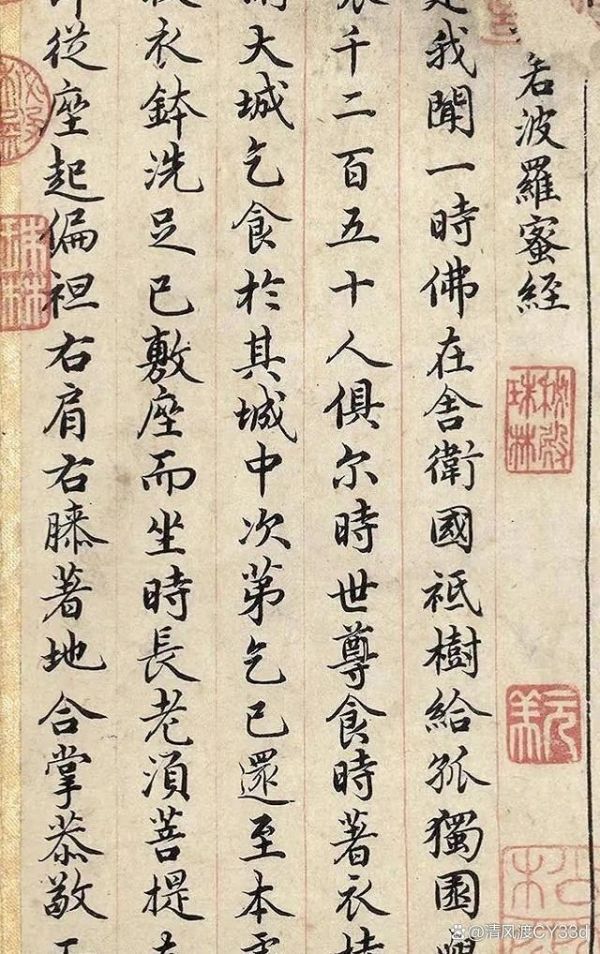 若波羅蜜經
是我聞一時佛在舍衛國祇樹給孤獨園與
衆千二百五十人俱尔時世尊食時著衣持
大城乞食於其城中次第乞已還至本處
衣鉢洗足已敷座而坐時長老須菩提在
即從座起偏袒右肩右膝著地合掌恭敬而
秘殿珠林
珠林
@清风渡CY33d